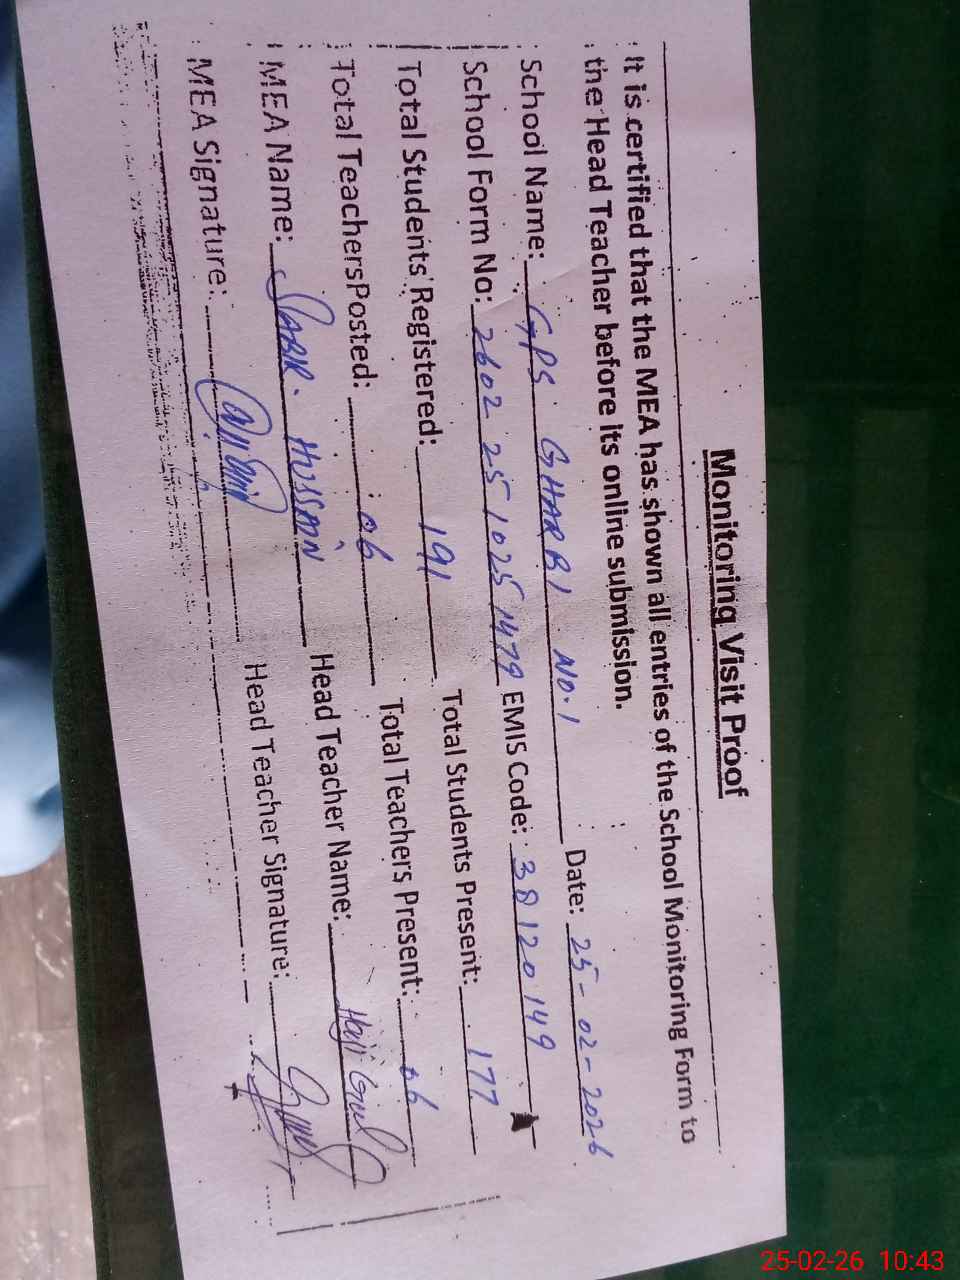 Monitoring Visit Proof
It is certified that the MEA has shown all entries of the School Monitoring Form to
the Head Teacher before its online submission.
School Name: GPS. GHARBI NO.1 Date: 25-02-2026
School Form No: 2602 25 1025 1479 EMIS Code: 38120149
Total Students Registered: 191 Total Students Present: 177
Total Teachers Posted: 06 Total Teachers Present: 06
MEA Name: SABIR. HUSSAIN Head Teacher Name: Haji Gul
MEA Signature: Head Teacher Signature:
25-02-26 10:43